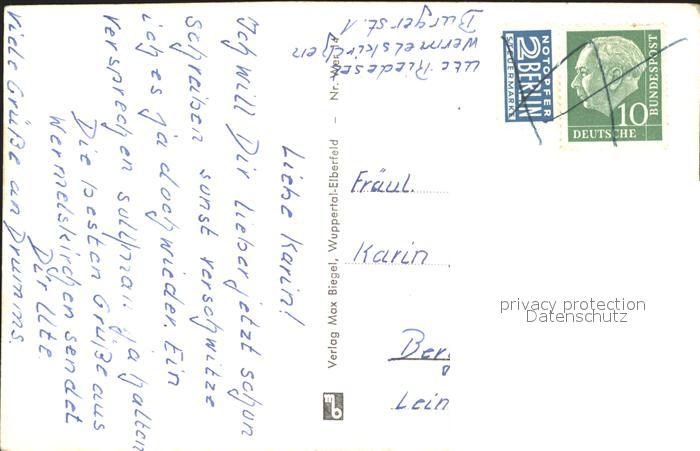 Liebe Karin!
Ich will Dir lieber jetzt schon
schreiben sonst verschwitze
ich es ja doch wieder. Ein
Versprechen soll man ja halten
Die besten Grüße aus
Wermelskirchen sendet
Dir Ute.
Viele Grüße an Brumms.
Ute Riedesel
Wermelskirchen
Burgerst. 1
Verlag Max Biegel, Wuppertal-Elberfeld – Nr. Wer
mb
NOTOPFER
2 BERLIN
STEUERMARKE
DEUTSCHE
BUNDESPOST
10
Fräul.
Karin
Ber
Lein
privacy protection
Datenschutz